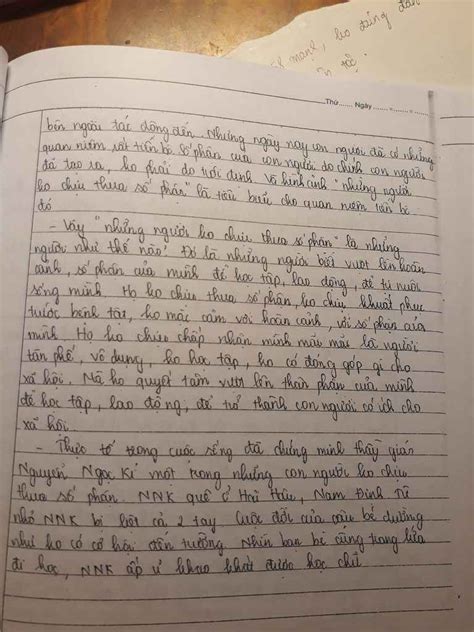 mạnh, ko
Thứ...... Ngày......
bên ngoài tác động đến. Nhưng ngày nay con người đã có những
quan niệm rất tiến bộ. Số phận của con người do chính con người
đã tạo ra, ko phải do trời định. Và hình ảnh "những người
ko chịu thua số phận" là tiêu biểu cho quan niệm tiến bộ
đó
- Vậy "những người ko chịu thua số phận" là những
người như thế nào? Đó là những người biết vượt lên hoàn
cảnh, số phận của mình để học tập, lao động, để tự nuôi
sống mình. Họ ko chịu thua số phận, ko chịu khuất phục
trước bệnh tật, ko mặc cảm với hoàn cảnh, với số phận của
mình. Họ ko chịu chấp nhận mình mãi mãi là người
tàn phế, vô dụng, ko học tập, ko có đóng góp gì cho
xã hội. Mà họ quyết tâm vượt lên thân phận của mình
để học tập, lao động, để trở thành con người có ích cho
xã hội.
- Thực tế trong cuộc sống đã chứng minh thầy giáo
Nguyễn Ngọc Kí một trong những con người ko chịu
thua số phận. NNK quê ở Hải Hậu, Nam Định. Từ
nhỏ NNK bị liệt cả 2 tay. Cuộc đời của cậu bé dường
như ko có cơ hội đến trường. Nhìn bạn bè cùng trang lứa
đi học, NNK ấp ủ khao khát được học chữ